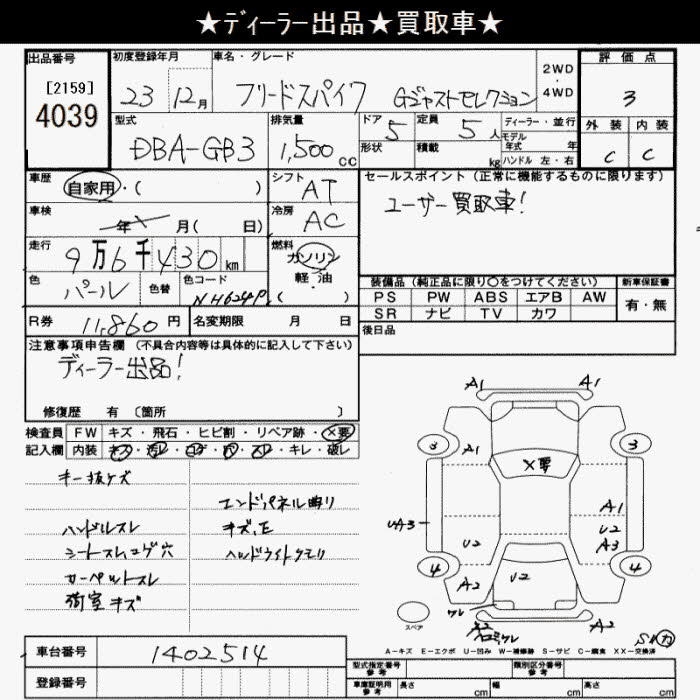 ★ディーラー出品★買取車★
出品番号 初度登録年月 車名・グレード 2WD・4WD 評価点
[2159] 4039 23 12月 フリードスパイク Gジャストセレクション 3
型式 排気量 ドア 定員 ディーラー・並行 外装 内装
DBA-GB3 1,500cc 5 5人 モデル年式 年 C C
形状 積載 kg ハンドル 左・右
車歴 自家用・( ) シフト AT セールスポイント(正常に機能するものに限ります)
車検 年 月( 日) 冷房 AC ユーザー買取車!
走行 9万6千430km 燃料 ガソリン 軽・油 ( )
色 パール 色替 色コード NH624P
装備品(純正品に限り○をつけてください) 新車保証書
PS PW ABS エアB AW 有・無
SR ナビ TV カワ
R券 11,860円 名変期限 月 日 後日品
注意事項申告欄(不具合内容等は具体的に記入して下さい)
ディーラー出品!
修復歴 有 〔箇所 〕
検査員 FW キズ・飛石・ヒビ割・リペア跡・X要
記入欄 内装 キズ・汚レ・コゲ・穴・スレ・キレ・破レ
キー抜ケズ
エンドパネル曲り
ハンドルスレ キズ、E
シートスレコゲ穴 ヘッドライトクモリ
カーペットスレ
荷室キズ
A1 A1
3 A1 X要 3
UA3 A1
U2 U2
A3
4 A2 U2 4
ワレ
スペア A2 A2
A-キズ E-エクボ U-凹み W-補修跡 S-サビ C-腐食 XX-交換済
車台番号 1402514
登録番号
型式指定番号 参考 類別区分番号 参考
車庫証明用 参考 長さ cm 幅 cm 高さ cm